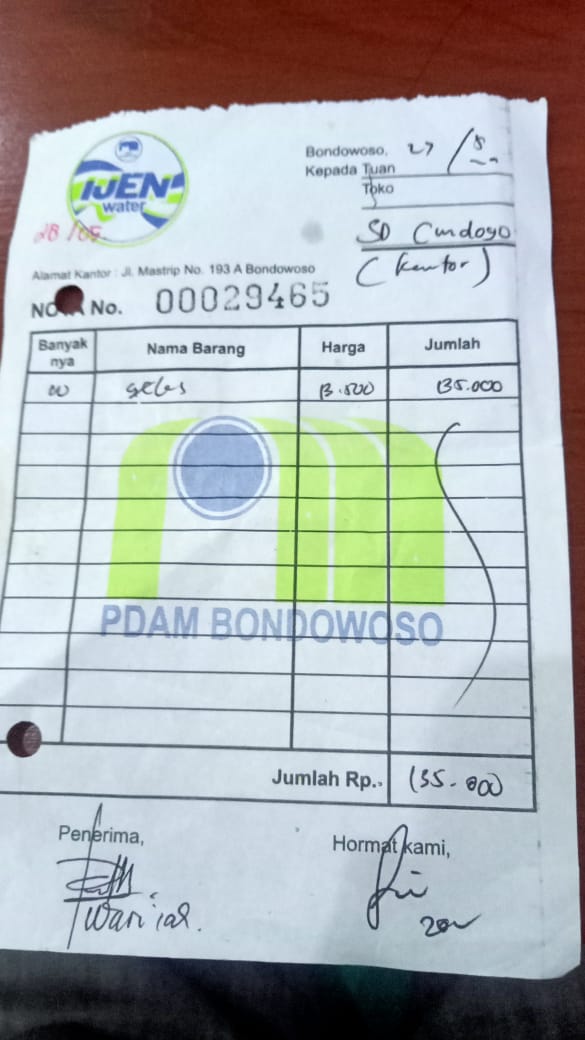 IJEN
water
Bondowoso, 27/8
Kepada Tuan
Toko
SD Cindogo
(kantor)
28/05
Alamat Kantor : Jl. Mastrip No. 193 A Bondowoso
NOTA No. 00029465
Banyak nya Nama Barang Harga Jumlah
10 gelas 13.500 135.000
PDAM BONDOWOSO
Jumlah Rp.. 135.000
Penerima, Hormat kami,